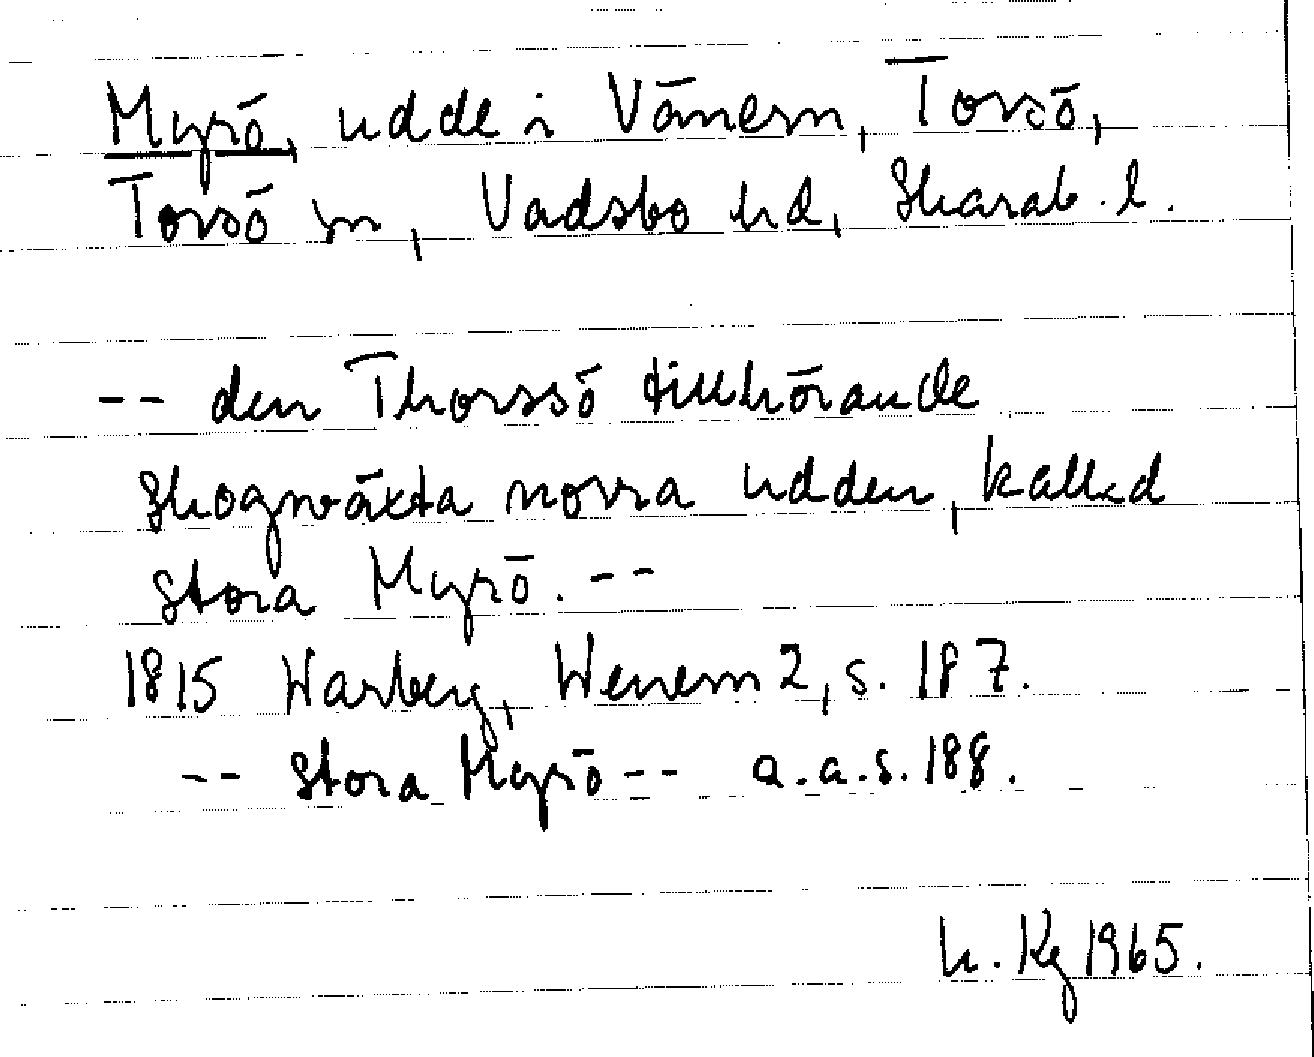 Myrö, udde i Vänern, Torsö,
Torsö sn, Vadsbo hd, Skarab. l.
-- den Thorssö tillhörande
skogwäxta norra udden, kallad
stora Myrö. --
1815 Warberg, Wenern 2, s. 187.
-- stora Myrö -- a.a.s. 188.
h. Kg 1965.